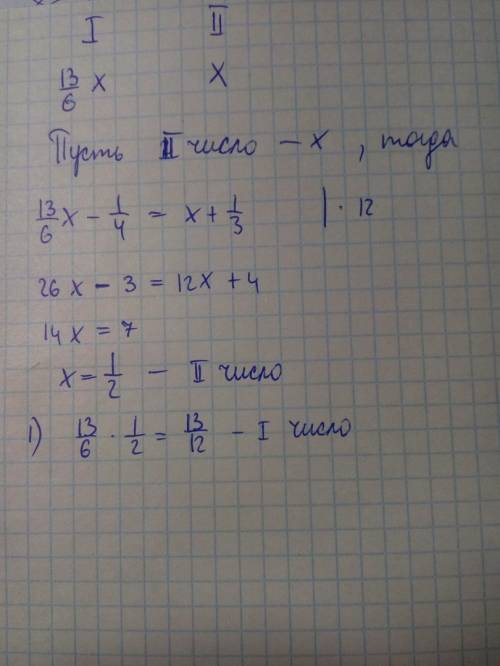 I II
13/6 x x
Пусть II число – x, тогда
13/6 x - 1/4 = x + 1/3 | · 12
26x - 3 = 12x + 4
14x = 7
x = 1/2 – II число
1) 13/6 · 1/2 = 13/12 – I число